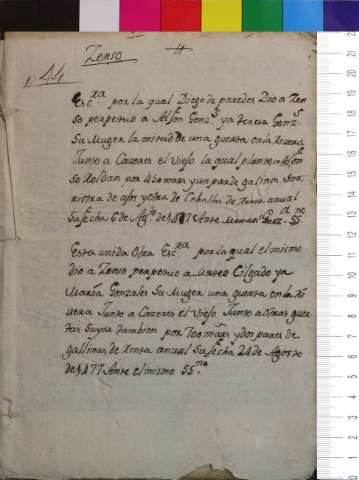 Zenso
nº 44
Escxa por la qual Diego de paredes Dio a Zen
so perpetuo a Alfon Gonzs ya teresa Gonzs
Su Muger la mitad de una guerta en la Rivera
Junto a Cazeres el Viejo la qual planto Alfon
so Roldan por 450 mars y un par de gallinas Una
ristra de ajos y otra de Cebollas de Renta anual
Su fecha 6 de Agto de 1477 Ante Manuel Gonz SSno
Esta unida Otra Escxa por la qual el mismo
dio a Zenso perpetuo a Mateo Gilgado ya
Maria Gonzales Su Muger una guerta en la Ri
vera Junto a Cazeres el Viejo Junto a otras guer
tas suyas tambien por 700 mars y dos pares de
gallinas de Renta anual Su fecha 24 de Agosto
de 1477 Ante el mismo SSno